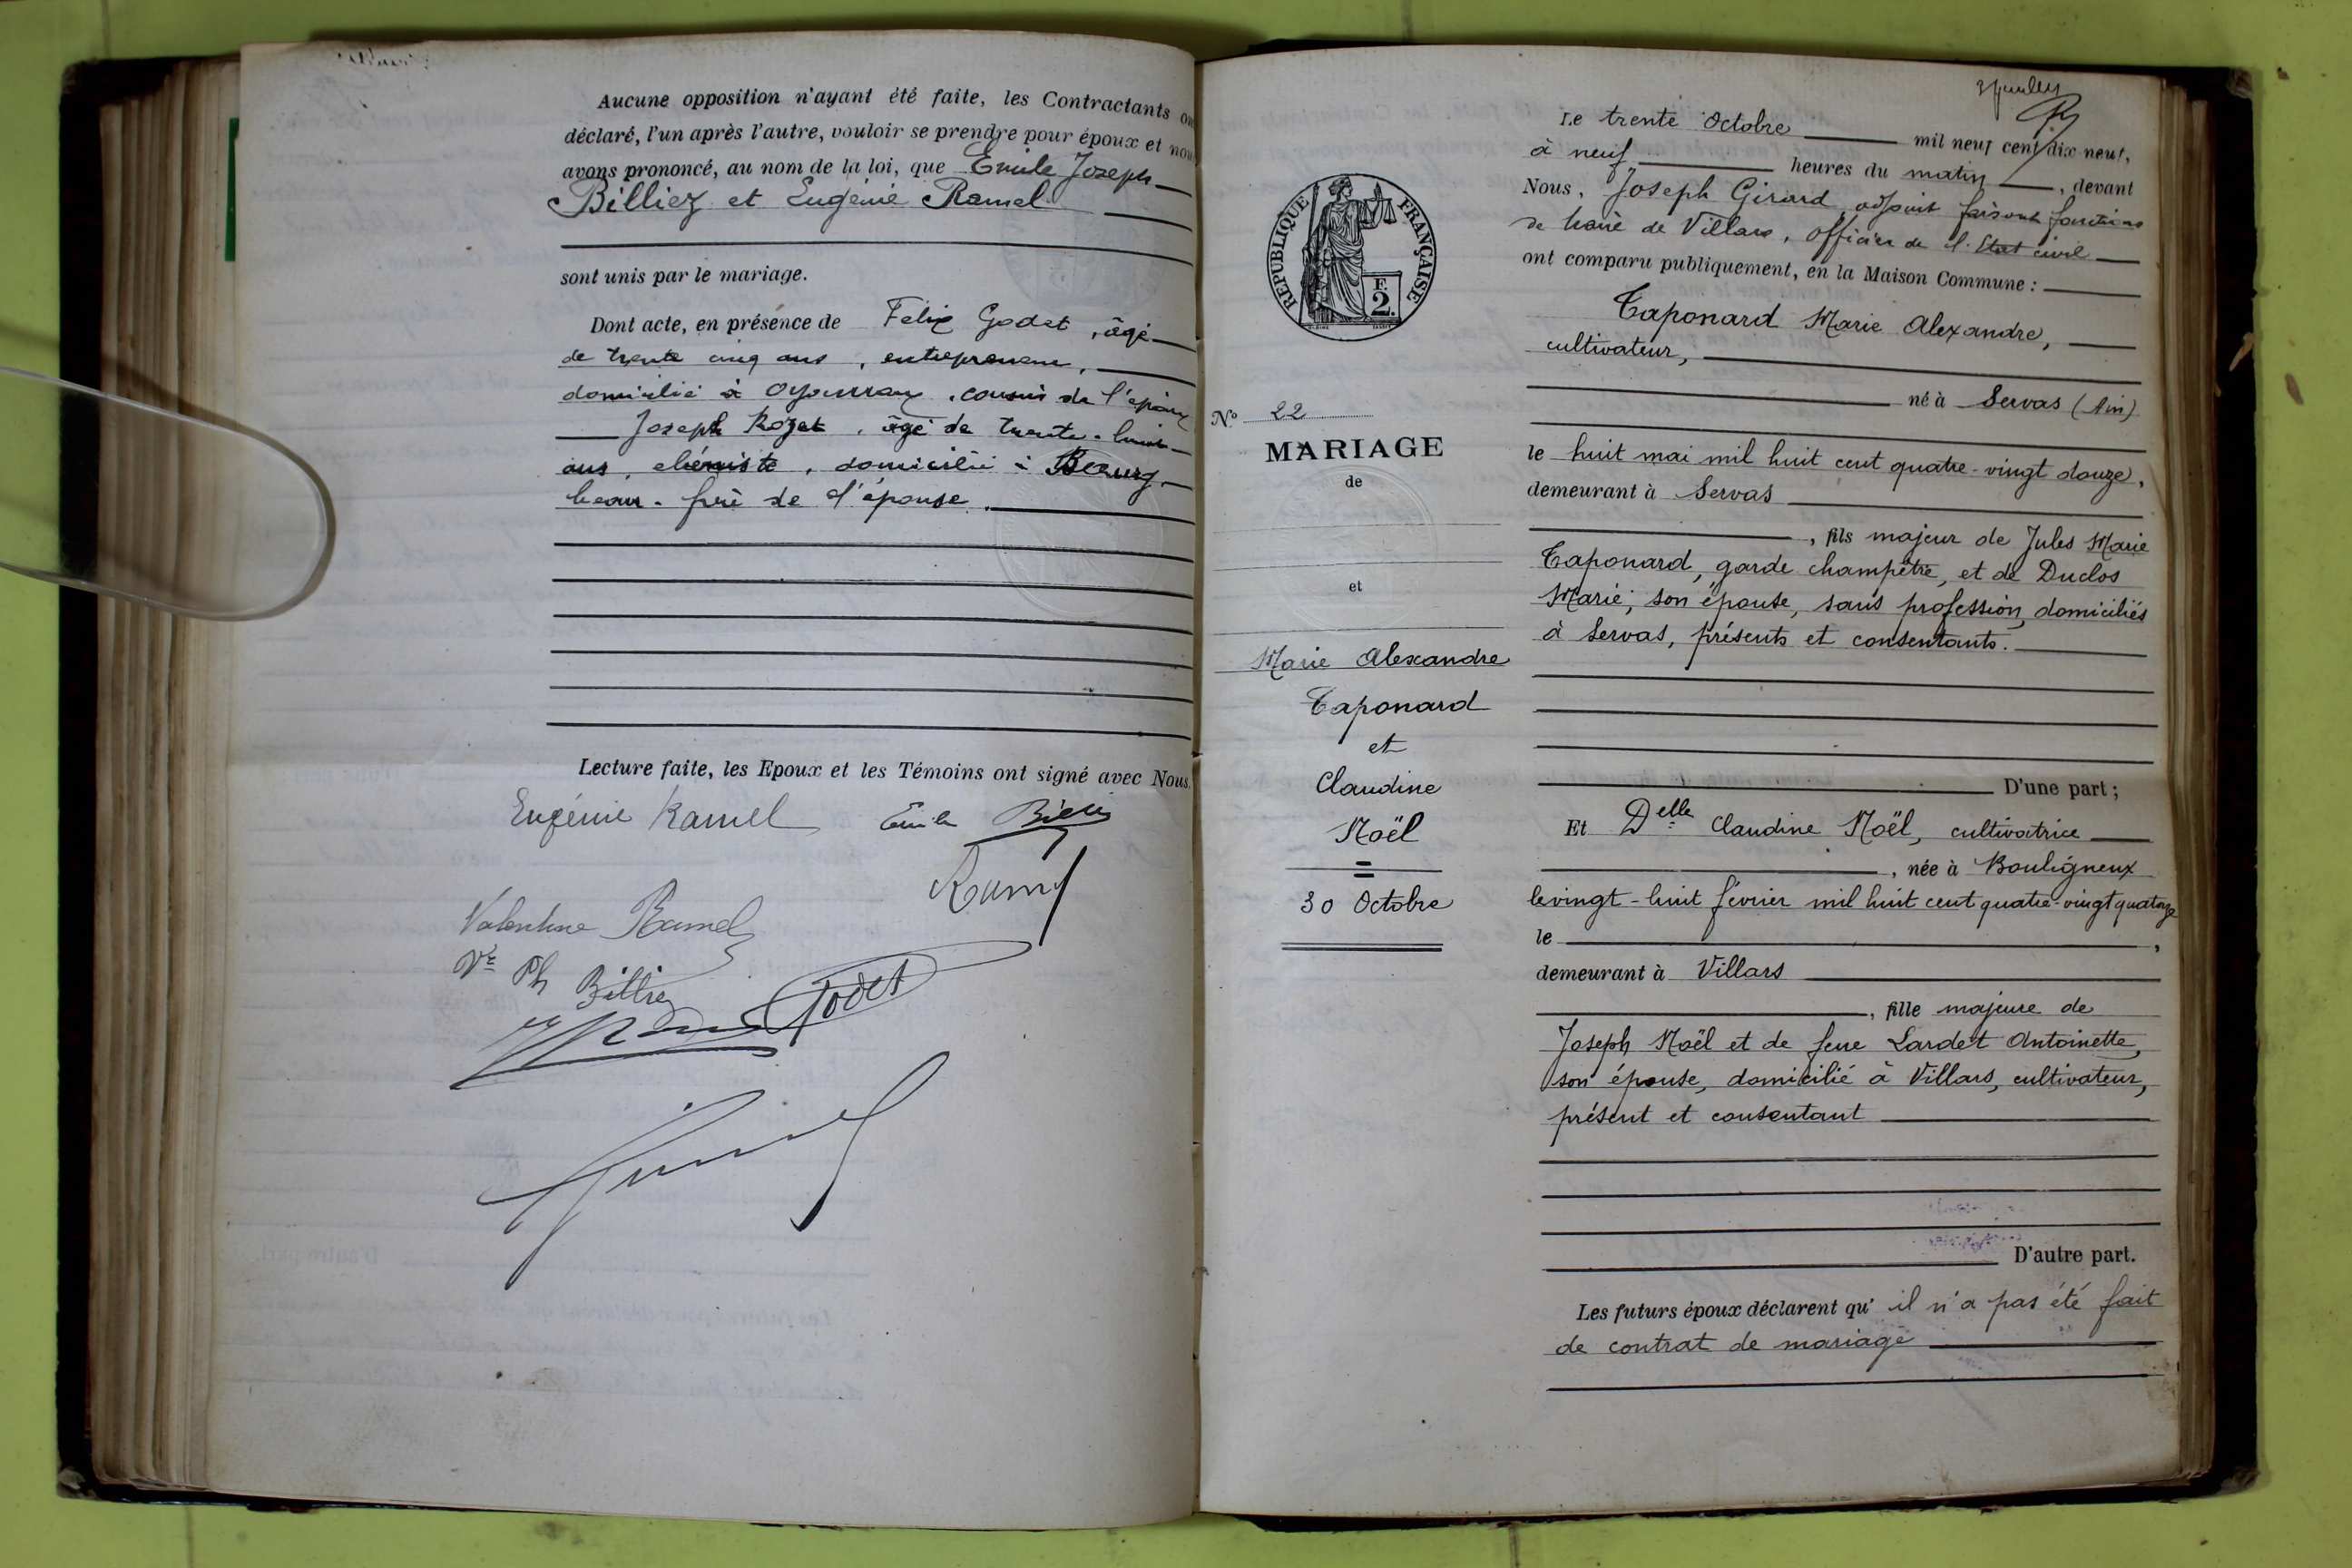 Aucune opposition n'ayant été faite, les Contractants on
déclaré, l'un après l'autre, vouloir se prendre pour époux et nou
avons prononcé, au nom de la loi, que Emile Joseph
Billiez et Eugénie Ramel
sont unis par le mariage.
Dont acte, en présence de Felix Godet, âgé
de trente cinq ans, entrepreneur,
domicilié à Oyonnax, cousin de l'époux
Joseph Rozet, âgé de trente-huit
ans, ébéniste, domicilié à Bourg,
beau-frère de l'épouse.
Lecture faite, les Epoux et les Témoins ont signé avec Nous.
Eugénie Ramel Emile Billiez
Ramel
Valentine Ramel
Vve Ph Billiez
Godet
RÉPUBLIQUE FRANÇAISE
F.
2.
No 22
MARIAGE
de
et
Marie Alexandre
Taponard
et
Claudine
Noël
30 Octobre
Le trente Octobre mil neuf cent dix neuf,
à neuf heures du matin, devant
Nous, Joseph Girard, adjoint faisant fonctions
de Maire de Villars, Officier de l'Etat civil
ont comparu publiquement, en la Maison Commune :
Taponard Marie Alexandre,
cultivateur,
né à Servas (Ain)
le huit mai mil huit cent quatre-vingt douze,
demeurant à Servas
, fils majeur de Jules Marie
Taponard, garde champêtre, et de Duclos
Marie, son épouse, sans profession, domiciliés
à Servas, présents et consentants.
D'une part ;
Et Delle Claudine Noël, cultivatrice
, née à Bouligneux
le vingt-huit février mil huit cent quatre-vingt quatorze
le ,
demeurant à Villars
, fille majeure de
Joseph Noël et de feue Lardet Antoinette,
son épouse, domicilié à Villars, cultivateur,
présent et consentant
D'autre part.
Les futurs époux déclarent qu' il n'a pas été fait
de contrat de mariage